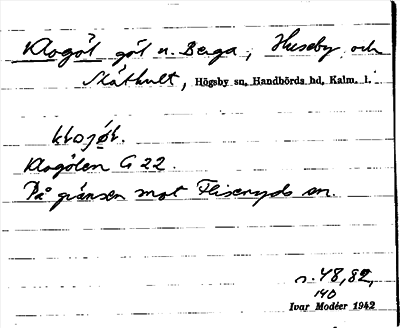 Klogöl göl u. Berga, Huseby och
Skáthult, Högsby sn, Handbörds hd, Kalm. l.
klojöl.
Klogölen G 22.
På gränsen mot Fliseryds sn.
s. 48, 82,
140
Ivar Modéer 1942